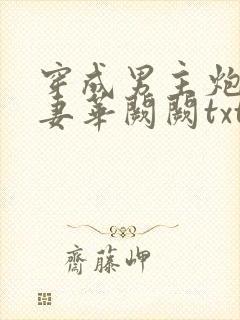 穿成男主炮
妻华阙阙txt
齋藤岬